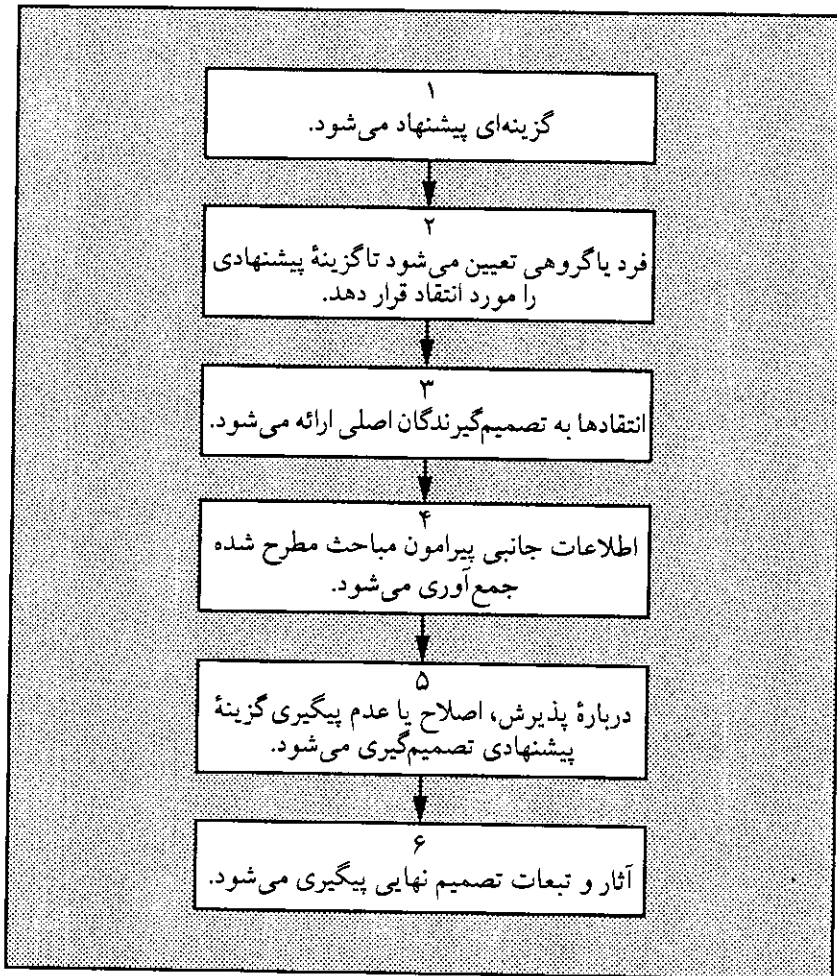 ۱
گزینه‌ای پیشنهاد می‌شود.
۲
فرد یا گروهی تعیین می‌شود تا گزینهٔ پیشنهادی
را مورد انتقاد قرار دهد.
۳
انتقادها به تصمیم‌گیرندگان اصلی ارائه می‌شود.
۴
اطلاعات جانبی پیرامون مباحث مطرح شده
جمع‌آوری می‌شود.
۵
دربارهٔ پذیرش، اصلاح یا عدم پیگیری گزینهٔ
پیشنهادی تصمیم‌گیری می‌شود.
۶
آثار و تبعات تصمیم نهایی پیگیری می‌شود.